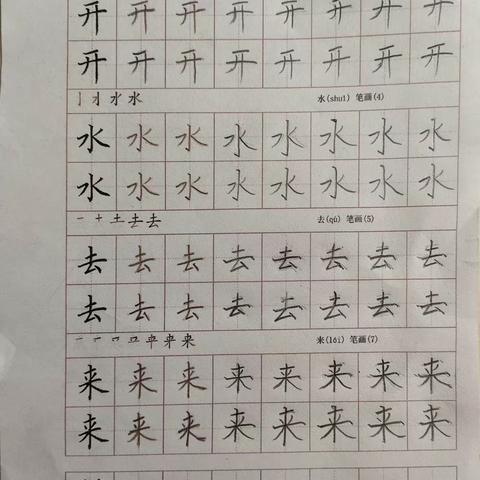 开 开 开 开 开 开 开 开
开 开 开 开 开 开 开 开
水(shuǐ) 笔画(4)
水 水 水 水 水 水 水 水
水 水 水 水 水 水 水 水
一 十 土 去 去 去(qù) 笔画(5)
去 去 去 去 去 去 去 去
去 去 去 去 去 去 去 去
来(lái) 笔画(7)
来 来 来 来 来 来 来 来
来 来 来 来 来 来 来 来